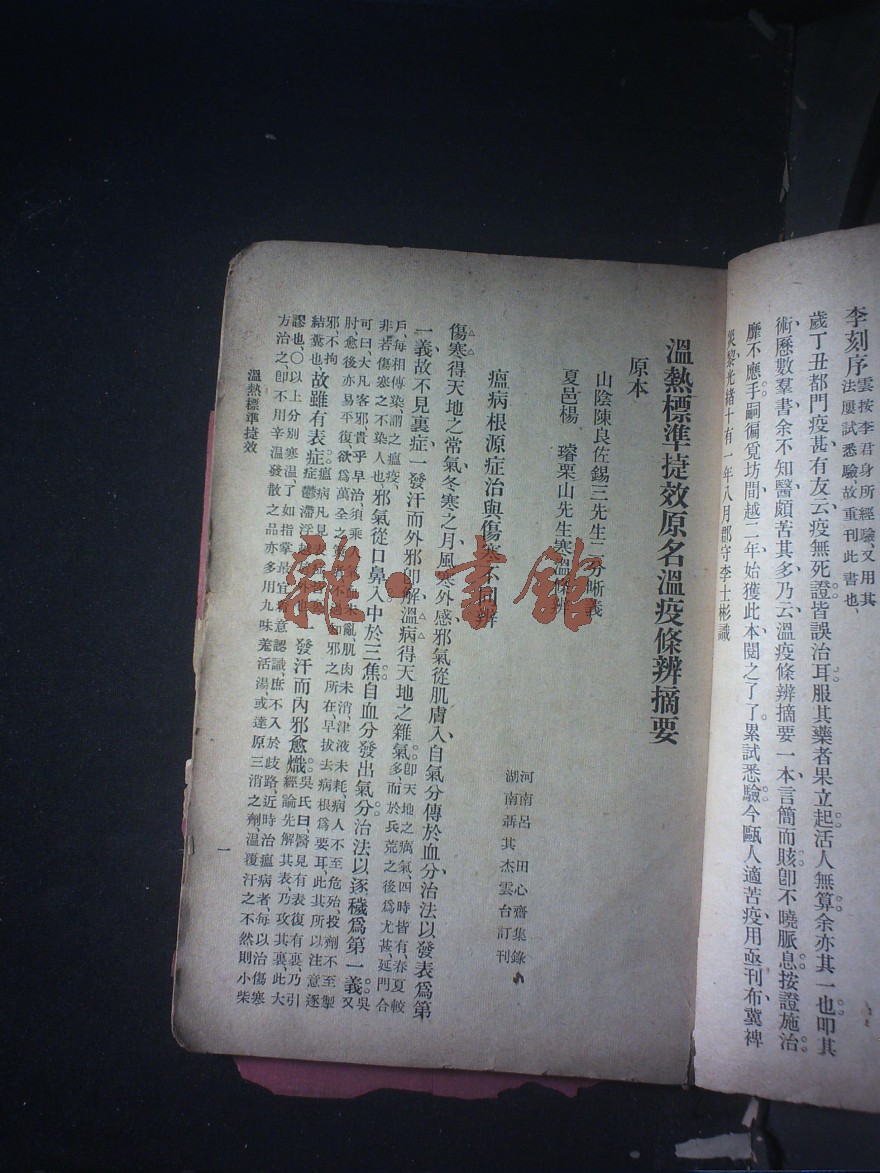 李刻序 雲按李君身所經驗、又用其
法屢試悉驗、故重刊此書也、
歲丁丑都門疫甚有友云疫無死證皆誤治耳服其藥者果立起活人無算余亦其一也叩其
術歷數羣書余不知醫頗苦其多乃云溫疫條辨摘要一本言簡而賅卽不曉脈息按證施治
靡不應手嗣徧覓坊間越二年始獲此本閱之了了累試悉驗今甌人適苦疫用亟刊布冀裨
災黎光緒十有一年八月郡守李士彬識
溫熱標準捷效原名溫疫條辨摘要
原本
山陰陳良佐錫三先生二分晰義
夏邑楊 璿栗山先生寒溫條辨
河南呂 田心齋集錄
湖南聶其杰雲台訂刊
瘟病根源症治與傷寒不同辨
傷寒得天地之常氣冬寒之月風寒外感邪氣從肌膚入自氣分傳於血分治法以發表爲第
一義故不見裏症一發汗而外邪卽解溫病得天地之雜氣 卽天地之癘氣、四時皆有、春夏較
多、而於兵荒之後爲尤甚、延門合
戶、每相傳染、謂之瘟疫、
非若傷寒之不染人也 邪氣從口鼻入中於三焦自血分發出氣分治法以逐穢爲第一義 吳
又
可曰、大凡客邪、貴乎早治須乘人 血未亂、肌肉未消、津液未耗、病人不至危殆、投劑不至掣
肘、愈後亦易平復、欲爲萬全之策 不過知邪之所在、早拔去病根爲要耳、此其所以注意逐
邪、不拘
結糞也、 故雖有表症 瘟病凡見表
症鬱滯浮越 發汗而內邪愈熾 吳氏曰、醫見有表復有裏、乃引
經論先解其表、乃攻其裏、此大
謬也、〇以上分別寒溫、了如指掌、最宜 意認識、庶不入於歧路、近時治瘟病者、每以治傷寒
方治之、卽不用辛溫發散之品、亦多用九味羗活湯、或達原三消之劑、溫覆汗之、不然則小柴
溫熱標準捷效
一
雜·書館